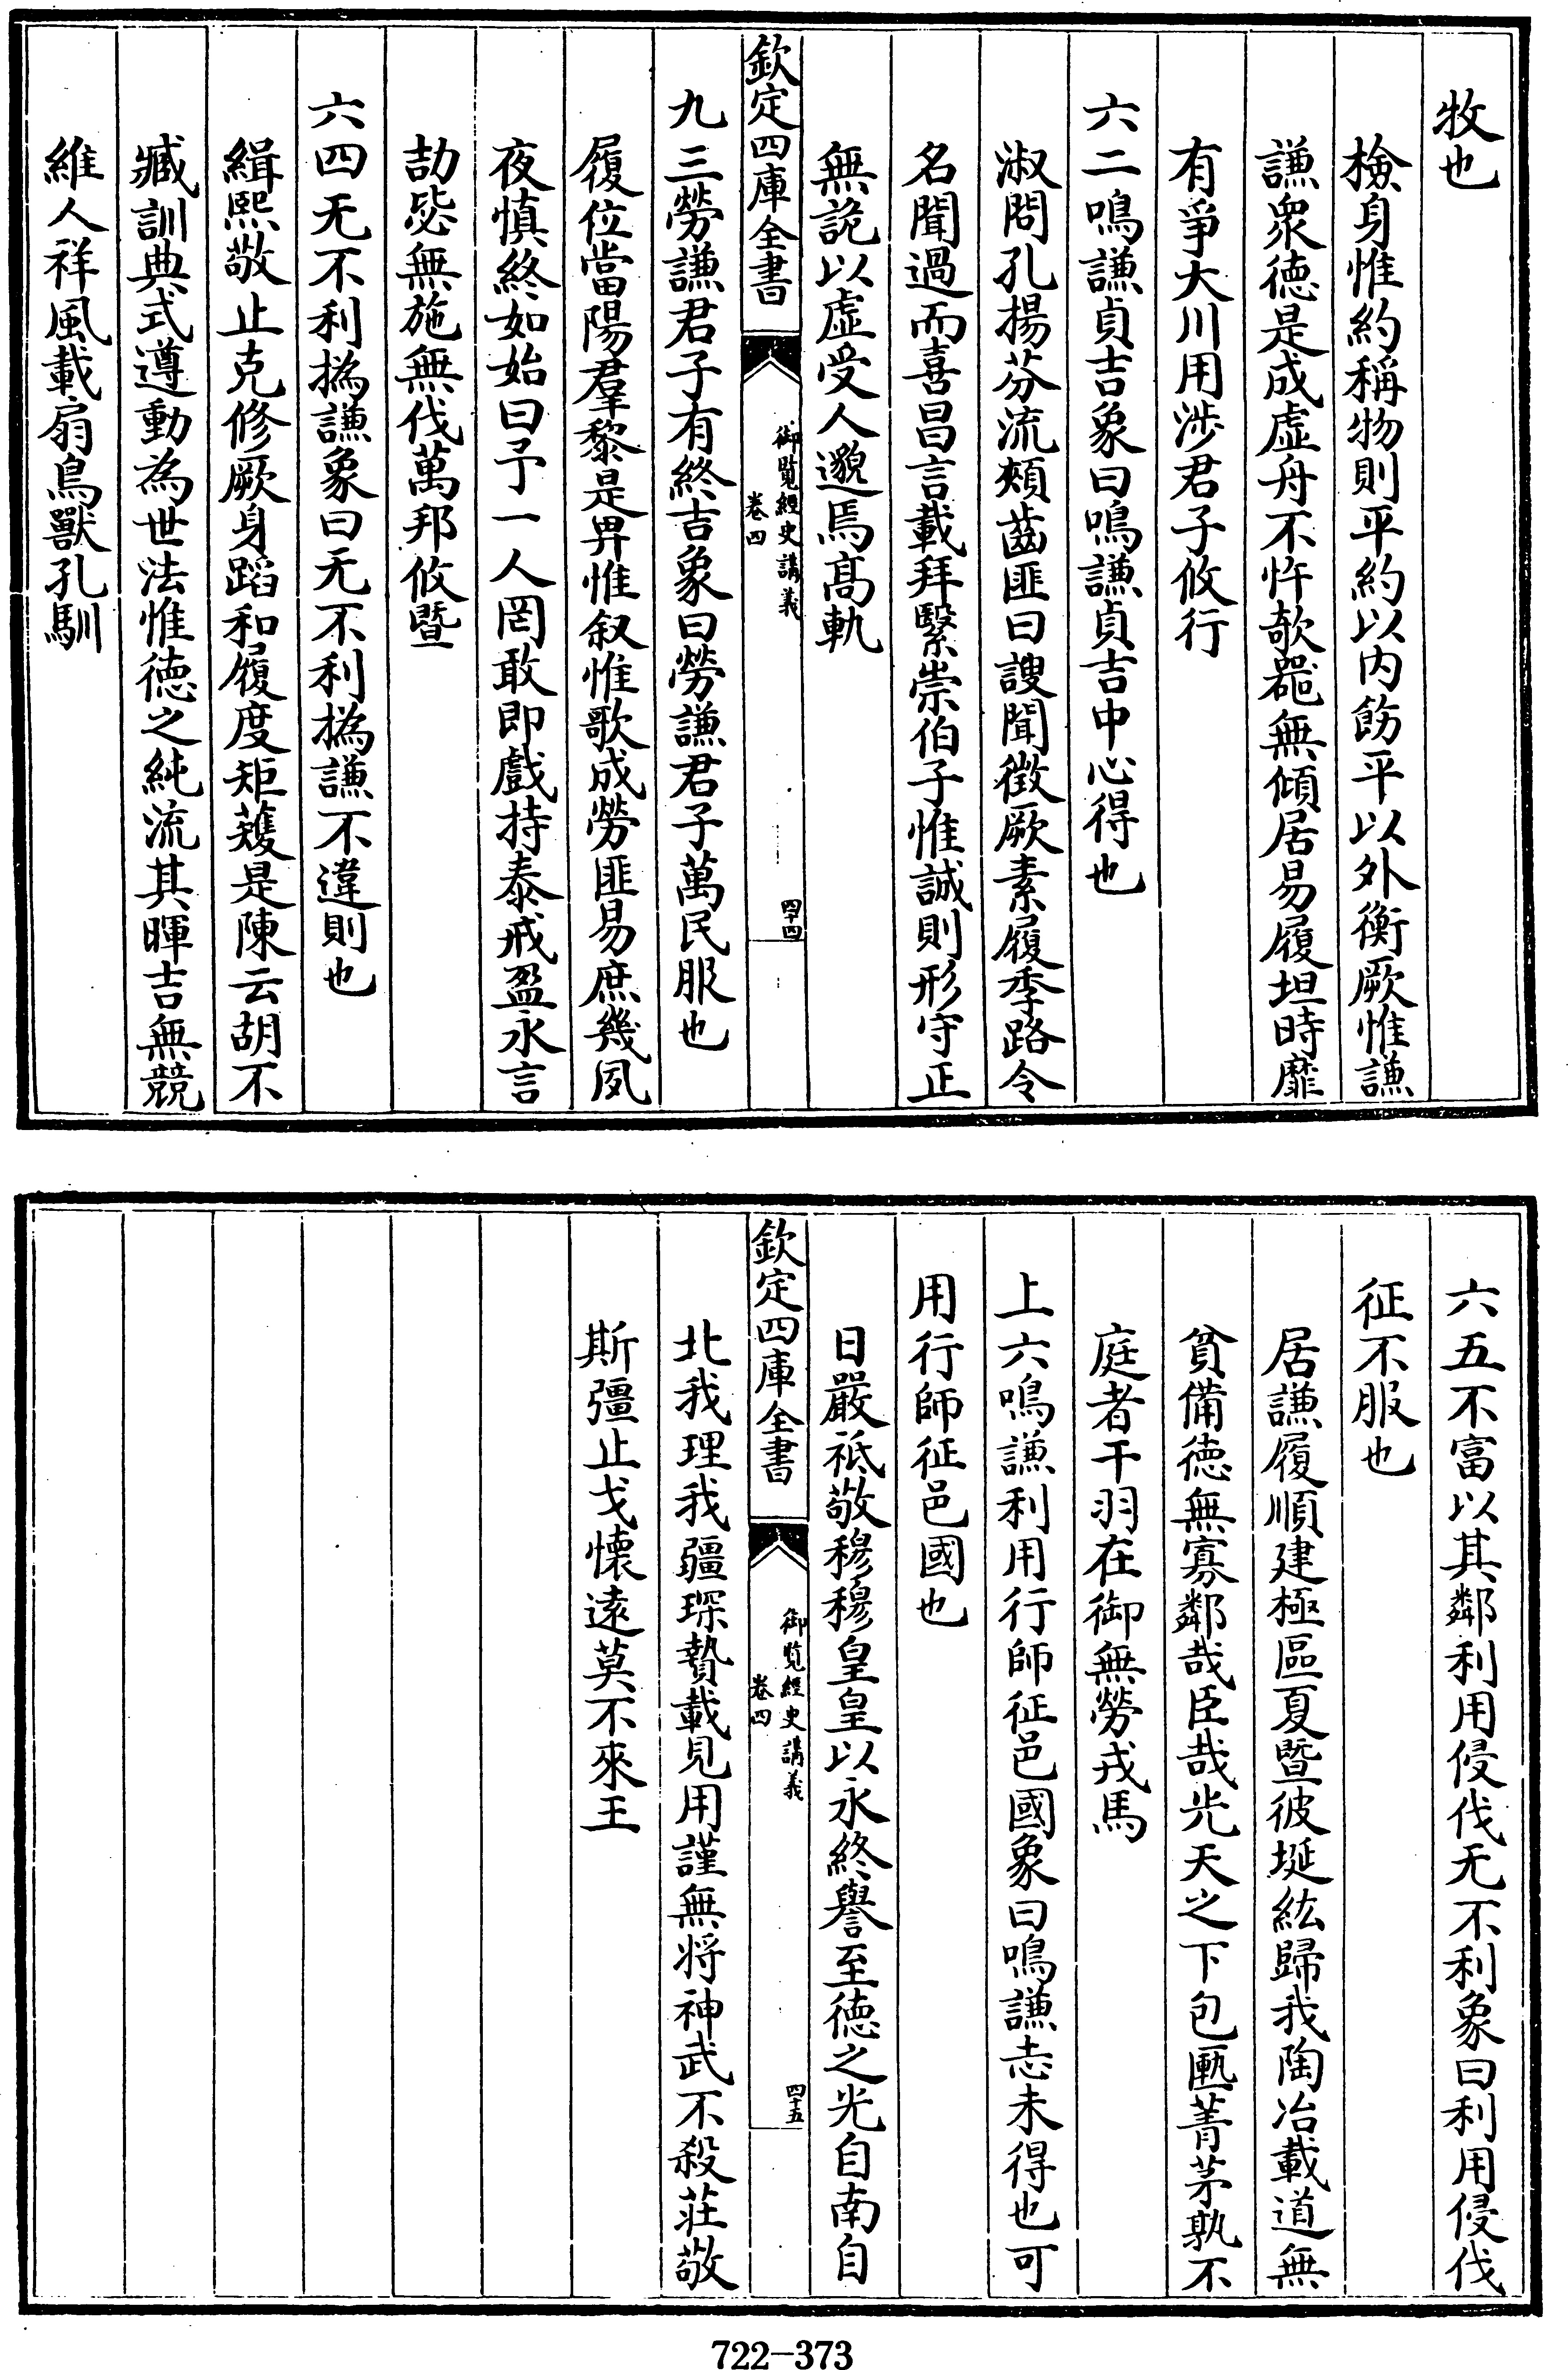 牧也
檢身惟約稱物則平約以内飭平以外衡厥惟謙
謙衆徳是成虚舟不忤欹器無傾居易履坦時靡
有爭大川用渉君子攸行
六二鳴謙貞吉象曰鳴謙貞吉中心得也
淑問孔揚芬流頰齒匪曰謏聞徴厥素履季路令
名聞過而喜昌言載拜繄崇伯子惟誠則形守正
無詭以虚受人邈焉髙軌
欽定四庫全書
御覧經史講義
卷四
四十四
九三勞謙君子有終吉象曰勞謙君子萬民服也
履位當陽羣黎是畀惟叙惟歌成勞匪易庶幾夙
夜慎終如始曰予一人罔敢即戲持泰戒盈永言
劼毖無施無伐萬邦攸曁
六四无不利撝謙象曰无不利撝謙不違則也
緝熙敬止克修厥身蹈和履度矩蒦是陳云胡不
臧訓典式遵動為世法惟徳之純流其暉吉無競
維人祥風載扇鳥獸孔馴
六五不富以其鄰利用侵伐无不利象曰利用侵伐
征不服也
居謙履順建極區夏曁彼埏紘歸我陶冶載道無
貧備徳無寡鄰哉臣哉光天之下包匭菁茅孰不
庭者干羽在御無勞戎馬
上六鳴謙利用行師征邑國象曰鳴謙志未得也可
用行師征邑國也
日嚴祗敬穆穆皇皇以永終譽至徳之光自南自
欽定四庫全書
御覧經史講義
卷四
四十五
北我理我疆琛贄載見用謹無將神武不殺莊敬
斯彊止戈懐逺莫不來王
722-373